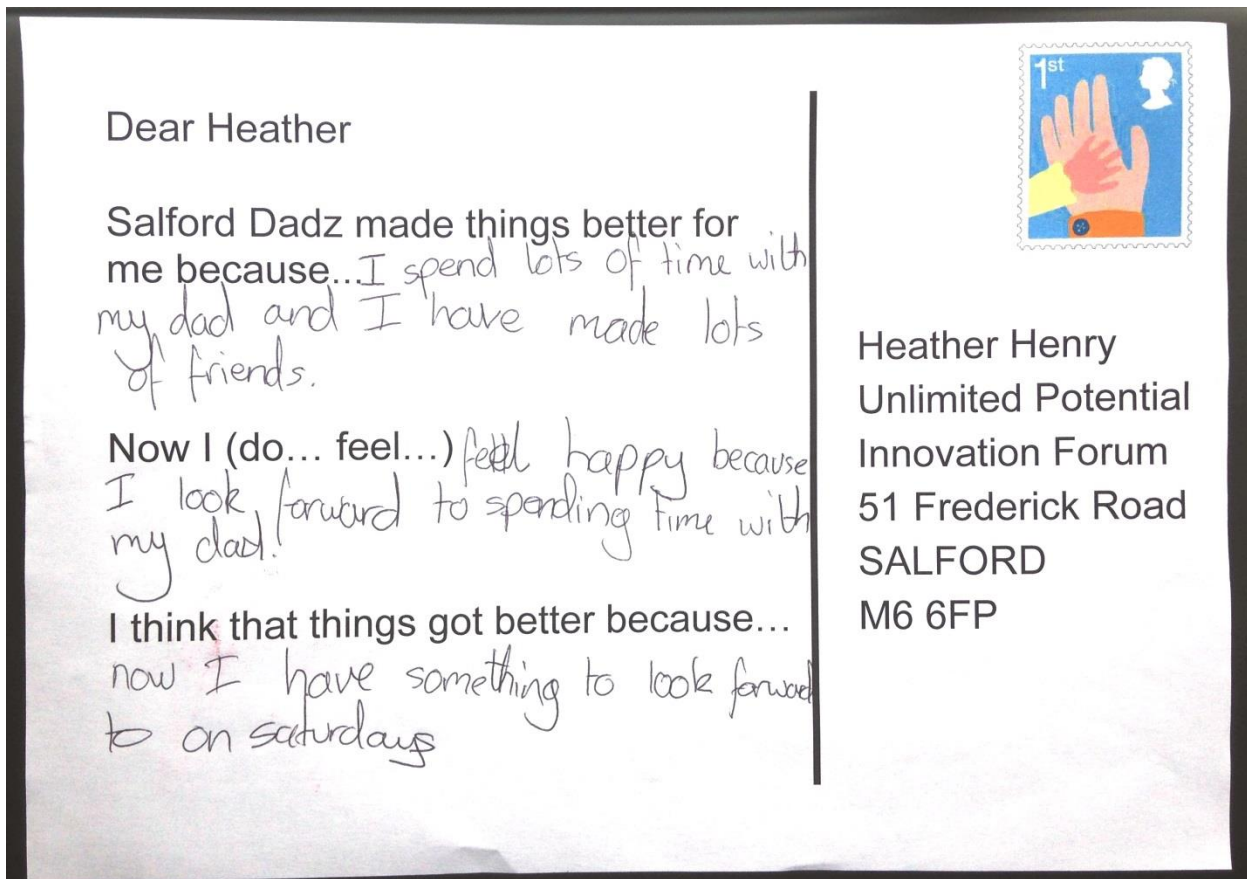 Dear Heather
Salford Dadz made things better for
me because...I spend lots of time with
my dad and I have made lots
of friends.
Now I (do... feel...) feel happy because
I look forward to spending time with
my dad!
I think that things got better because...
now I have something to look forward
to on saturdays
1st
Heather Henry
Unlimited Potential
Innovation Forum
51 Frederick Road
SALFORD
M6 6FP